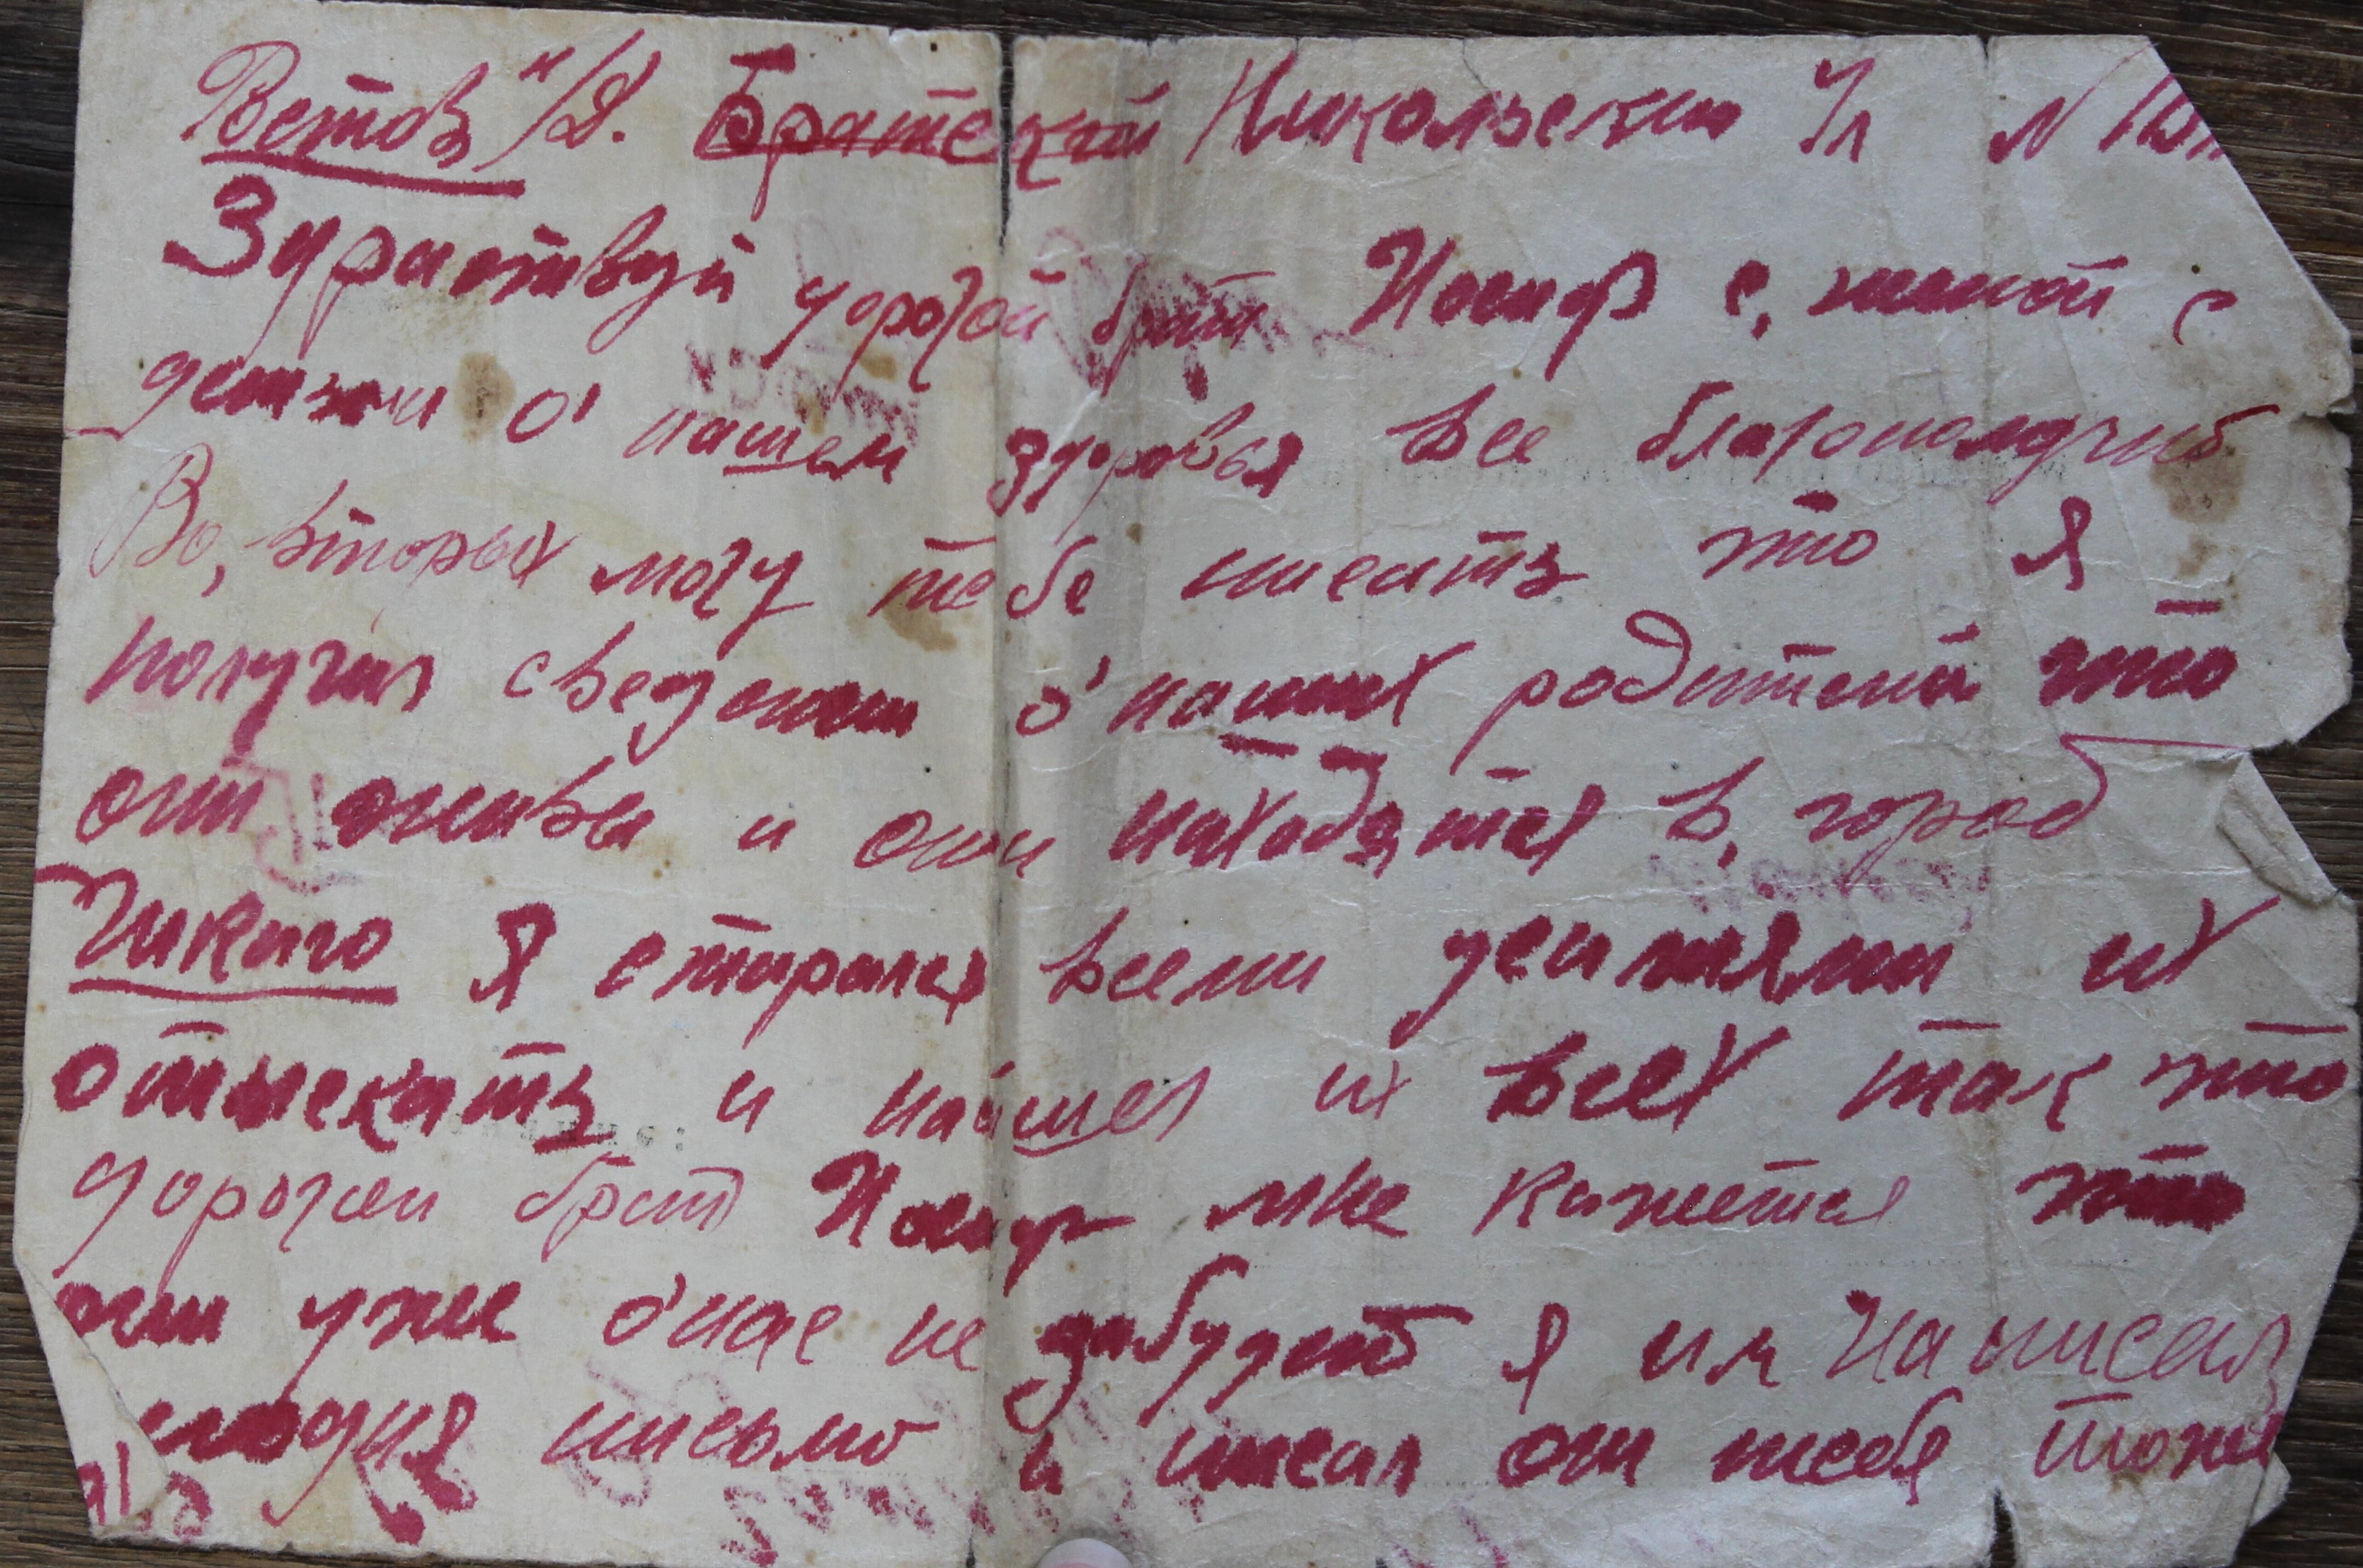 Ростов н/Д. Братский Никольский Ул N
Здраствуй дорогой брат Иосиф с, женой с
детями о' нашем здоровья все благополучно
Во, вторых могу тебе писать что я
получил сведения о' наших родителей что
они живы и они находятся в, город
Я старался всеми усилями их
отыскать и найшел их всех так что
дорогой брат Иосиф мне кажется что
они уже о'нас не забудет я им написал
сегодня письмо и писал от тебя тоже